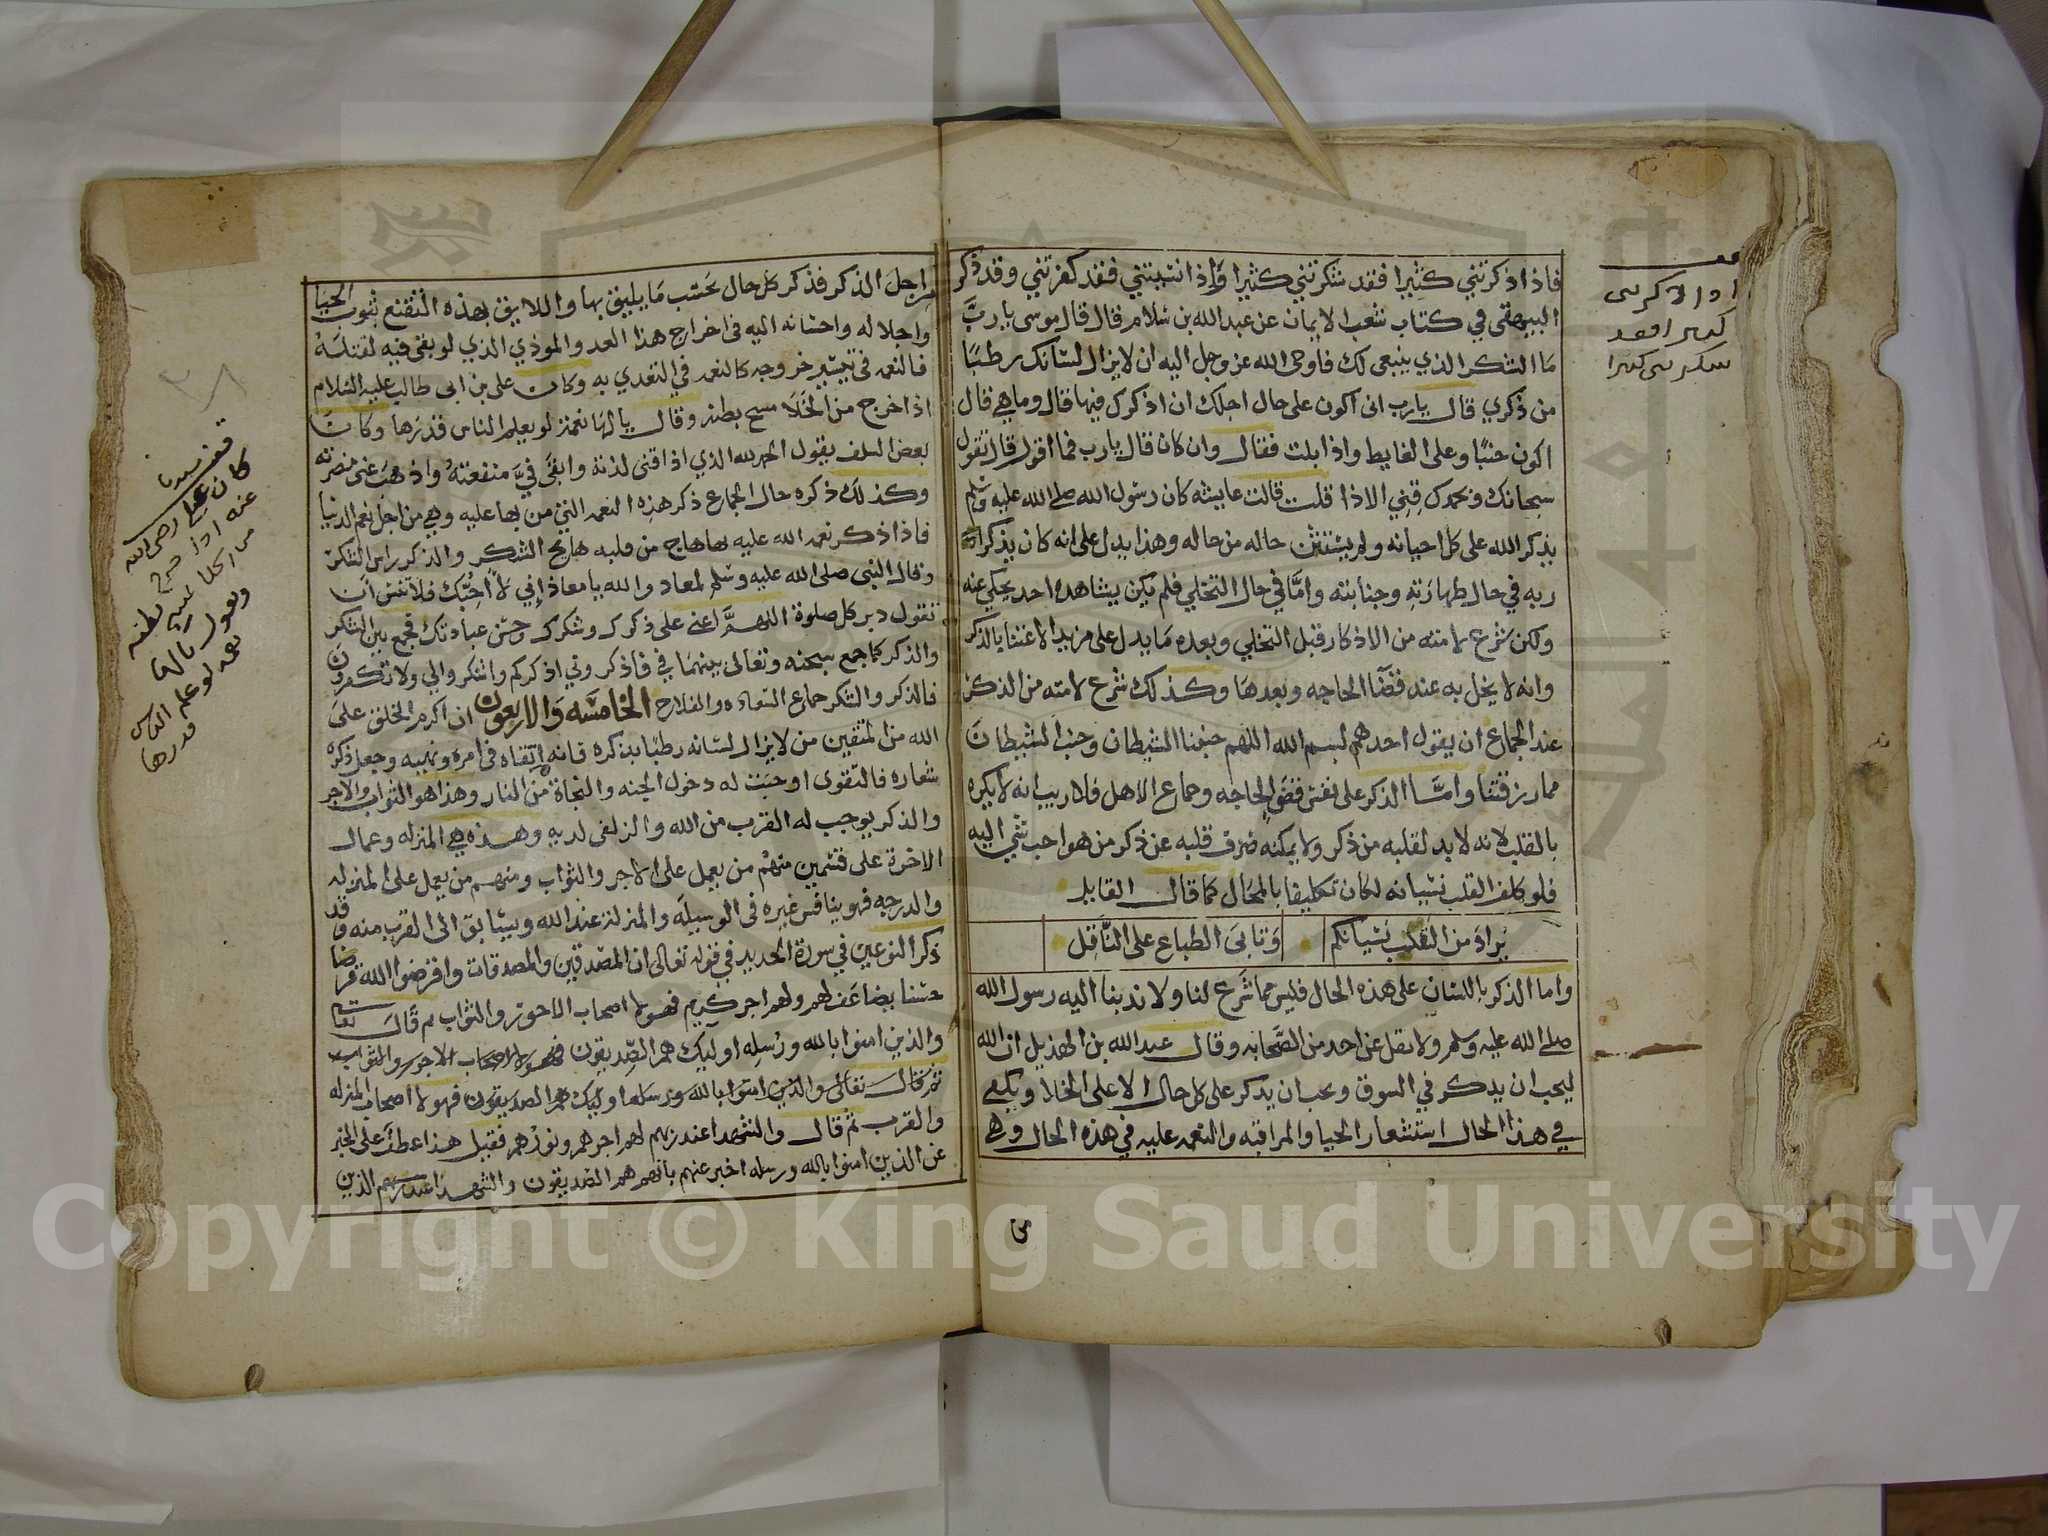 فاذا ذكرتني كثيرا فقد شكرتني كثيرا وَاِذا نسيتني فقد كفرتني وقد ذكر
البيهقي في كتاب شعب الايمان عن عبد الله بن سلام قال قال موسى يا ربَّ
مَا الشكر الذي ينبغي لك فاوحى الله عز وجل اليه ان لا يزال لسانك رطبًا
من ذكري قال يارب انى اكون على حال اجلك ان اذكرك فيها قال وما هي قال
اكون جنبًا وعلى الغايط واذا بلت فقال وان كان قال يارب فما اقول قال تقول
سبحانك وبحمدك قِنِي الاذا قلت قالت عايشه كان رسول الله صلى الله عليه وسلم
يذكر الله على كل احيانه ولم يستثن حاله من حاله وهذا يدل على انه كان يذكر
ربه في حال طهارته وجنابته وامَّا في حال التخلي فلم يكن يشاهده احد يحكي عنه
ولكن شرع لامته من الاذكار قبل التخلي وبعده مَا يدل على مزيد الاعتنا بالذكر
وانه لا يخل به عند قضَا الحاجه وبعدهَا وكذلك شرع لامته من الذكر
عند الجماع ان يقول احدهم بسم الله اللهم جنبنا الشيطان وجنب الشيطان
مما رزقتنا وامَّا الذكر على نفس قضا الحاجه وجماع الاهل فلا ريب انه لا يكره
بالقلب لانه لا بد لقلبه من ذكر ولا يمكنه صرف قلبه عن ذكر من هو احب شي اليه
فلو كلف القلب نسيانه لكان تكليفا بالمحال كما قال القايل
يراد من القلب نسيانكم وتابى الطباع على الناقل
واما الذكر باللسان على هذه الحال فليس مما شرع لنا ولا ندبنا اليه رسول الله
صلى الله عليه وسلم ولا نقل عن احد من الصَّحابه وقال عبد الله بن الهذيل ان الله
ليحب ان يذكر في السوق ويحب ان يذكر على كل حال الا على الخلا ويكفي
في هذا الحال استشعار الحيا والمراقبه والنعمه عليه في هذه الحال وهي
اذا ذكرتنى
كثيرا فقد
شكرتنى كثيرا
من اجل الذكر فذكر كل حال بحسب مَا يليق بها واللايق بهذه التقنع بثوب الحيا
واجلا له واحسانه اليه في اخراج هذا العدو الموذي الذي لو بقي فيه لقتله
فالنعمه في تيسير خروجه كالنعمه في التغدي به وكان على بن ابى طالب عليه السلام
اذا خرج من الخلَا مسح بطنه وقال يالها نعمة لو يعلم الناس قدرها وكان
بعض السلف يقول الحمد لله الذي اذاقنى لذته وابقى فيَّ منفعته واذهب عنى مضرته
وكذلك ذكره حال الجماع ذكر هذه النعمه التي من بها عليه وهي من اجل نعم الدنيا
فاذا ذكر نعمه الله عليه بها هاج من قلبه هايج الشكر والذكر راس الشكر
وقال النبى صلى الله عليه وسلم لمعاذ والله يا معاذ اِنِي لاُحِبُّك فلا تنس ان
تقول دبر كل صلوة اللهمَّ اعني على ذكرك وشكرك وحسن عبادتك فجمع بين الشكر
والذكر كما جمع سبحنه وتعالى بينهما في فاذكروني اذكركم واشكروا لي ولا تكفرون
فالذكر والشكر جماع السعاده والفلاح الخَامسَه وَالاربعون ان اكرم الخلق على
الله من المتقين من لا يزال لسانه رطبًا بذكره فانه اتقاه في امره ونهيه وجعل ذكره
شعاره فالتقوى اوجبت له دخول الجنه والنجاة من النار وهذا هو الثواب والاجر
والذكر يوجب له القرب من الله والزلفى لديه وهذه هي المنزله وعمال
الاخرة على قسمين منهم من يعمل على الاجر والثواب ومنهم من يعمل على المنزله
والدرجه فهو ينافس غيره في الوسيله والمنزلة عند الله ويسابق الى القرب منه وقد
ذكر النوعين في سورة الحديد في قوله تعالى ان المصدقين والمصدقات واقرضوا الله قرضا
حسنا يضاعف لهم ولهم اجر كريم فهولا اصحاب الاجور والثواب ثم قال تعالى
والذين امنوا بالله ورسله اوليك هم الصِّديقون فهولا اصحاب الاجور والثواب
ثم قال تعالى والذين امنوا بالله ورسله اوليك هم الصديقون فهولا اصحاب المنزله
والقرب ثم قال والشهدا عند ربهم لهم اجرهم ونورهم فقيل هذا عطف على الخبر
عن الذين امنوا بالله ورسله اخبر عنهم بانهم هم الصديقون والشهدا عند ربهم الذين
قف سيدنا
كان علي رضي الله
عنه اذا خرج
من الخلا مسح بطنه
ويقول يالها
نعمه لو علم الناس
قدرها
Copyright © King Saud University